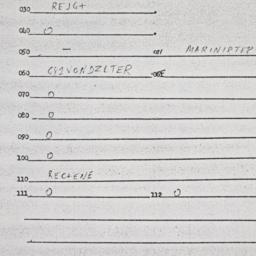 030 REJG+
040 0
050 — 051 MARINISTER
060 OSIVONDZLTER
070 0
080 0
090 0
100 0
110 RECHENE
111 0 112 0